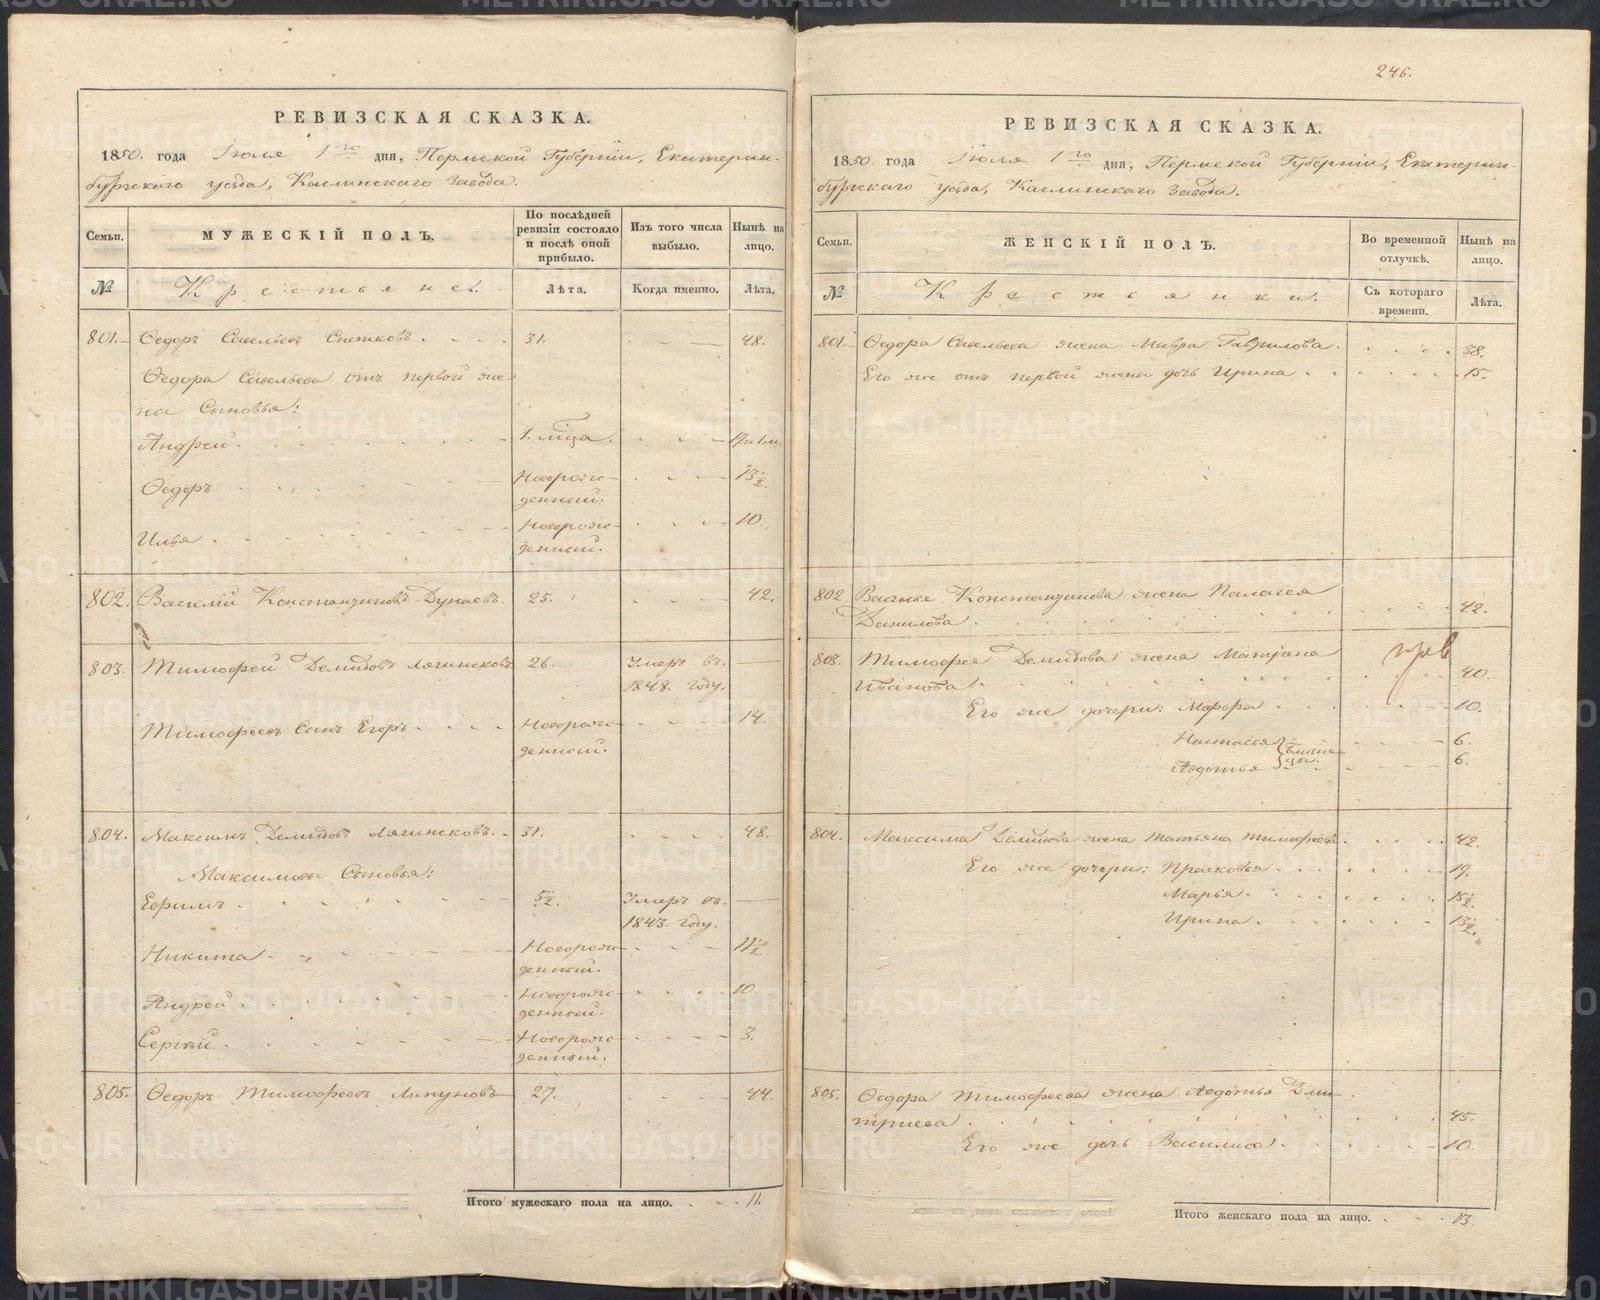 РЕВИЗСКАЯ СКАЗКА.
1850. года Іюля 1го дня, Пермской Губерніи, Екатерин-
бургскаго уезда, Каслинскаго Завода.
Семьи. МУЖЕСКІЙ ПОЛЪ. По послѣдней ревизіи состояло и послѣ оной прибыло. Изъ того числа выбыло. Нынѣ на лицо.
№ Крестьяне. Лѣта. Когда именно. Лѣта.
801. Ѳедоръ Савельевъ 31. 48.
Ѳедора Савельева отъ первой же-
ны Сыновья:
Андрей 1. м‑ца.
Ѳедоръ Новорож- 13½.
денный.
Илья Новорож- 10.
денный.
802. Василій Константиновъ Дунаевъ. 25. 42.
803. Тимофей Демидовъ Лягинсковъ 26. Умеръ въ —
1848. году.
Тимофеевъ Сынъ Егоръ Новорож- 14.
денный.
804. Максимъ Демидовъ Лягинсковъ. 31. 48.
Максимовы Сыновья:
Ефимъ 5½. Умеръ въ —
1843. году.
Никита Новорож- 11½
денный.
Андрей Новорож- 10.
денный.
Сергѣй Новорож- 3.
денный.
805. Ѳедоръ Тимофеевъ Липуновъ 27. 44.
Итого мужескаго пола на лицо. 11.
246.
РЕВИЗСКАЯ СКАЗКА.
1850. года Іюля 1го дня, Пермской Губерніи, Екатерин-
бургскаго уезда, Каслинскаго Завода.
Семьи. ЖЕНСКІЙ ПОЛЪ. Во временной отлучкѣ. Нынѣ на лицо.
№ Крестьянки. Съ котораго времени. Лѣта.
801. Ѳедора Савельева жена Мавра Гаврилова. 38.
Его же отъ первой жены дочь Ирина 15.
802. Василья Константинова жена Палагея
Данилова 42.
803. Тимофея Демидова жена Матрена
Иванова 40.
Его же дочери: Марфа 10.
Настасья } близне- 6.
Авдотья } цы. 6.
804. Максима Демидова жена Татьяна Тимофеева 42.
Его же дочери: Прасковья 19.
Марья 15½.
Ирина 13½.
805. Ѳедора Тимофеева жена Авдотья Дми-
триева 45.
Его же дочь Василиса 10.
Итого женскаго пола на лицо. 13
METRIKI.GASO-URAL.RU